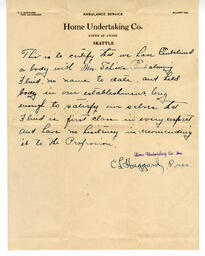 AMBULANCE SERVICE
Home Undertaking Co.
NINTH AT UNION
SEATTLE
This is to certify that we have Embalmed
a body with Mr Embalming
Fluid no name to date, and held
body in our establishment long
enough to satisfy our selves that
Fluid is first class in every respect
and have no hesitancy in recommending
it to the Profession.
Home Undertaking Co. Inc.
C L Haggard, Pres.